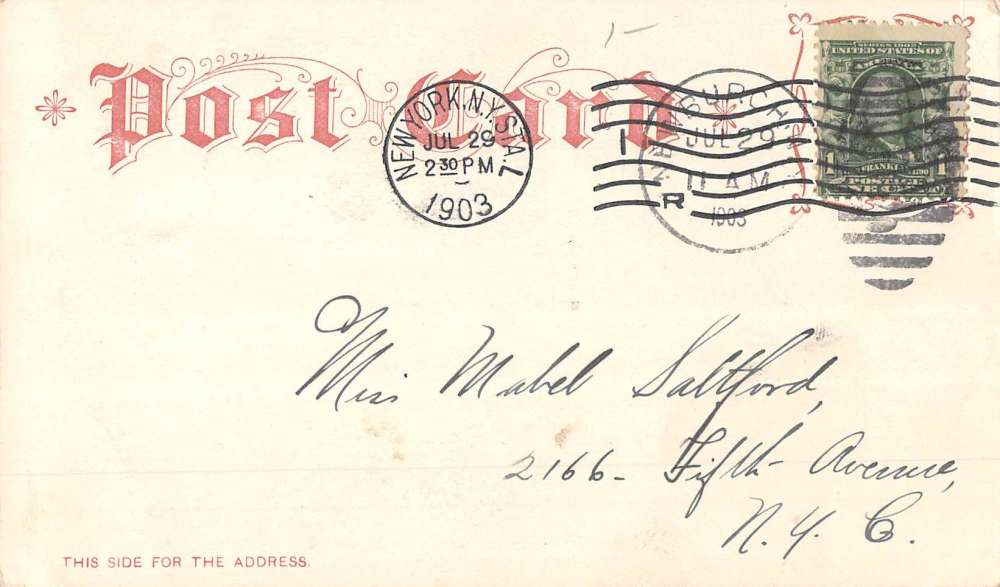 Post Card
NEW YORK, N.Y. STA. L
JUL 29
2 30 PM
1903
NEWBURGH
JUL 29
11 AM
1903
1
R
SERIES 1902
UNITED STATES OF
AMERICA
FRANKLIN
1 POSTAGE 1
ONE CENT
Miss Mabel Saltford,
2166- Fifth Avenue,
N. Y. C.
THIS SIDE FOR THE ADDRESS.